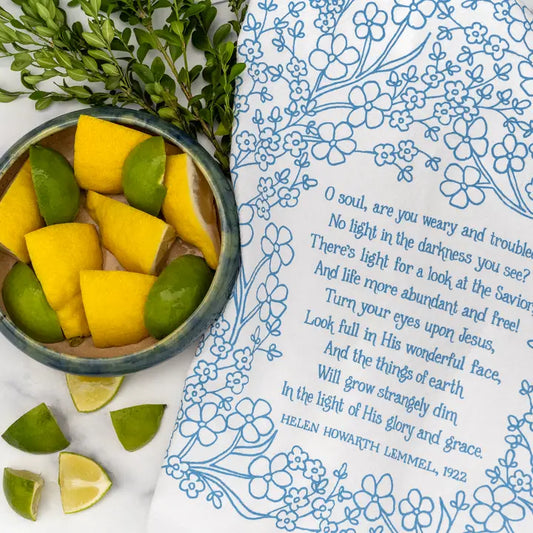 O soul, are you weary and troubled
No light in the darkness you see?
There's light for a look at the Savior,
And life more abundant and free!
Turn your eyes upon Jesus,
Look full in His wonderful face,
And the things of earth
Will grow strangely dim
In the light of His glory and grace.
HELEN HOWARTH LEMMEL, 1922